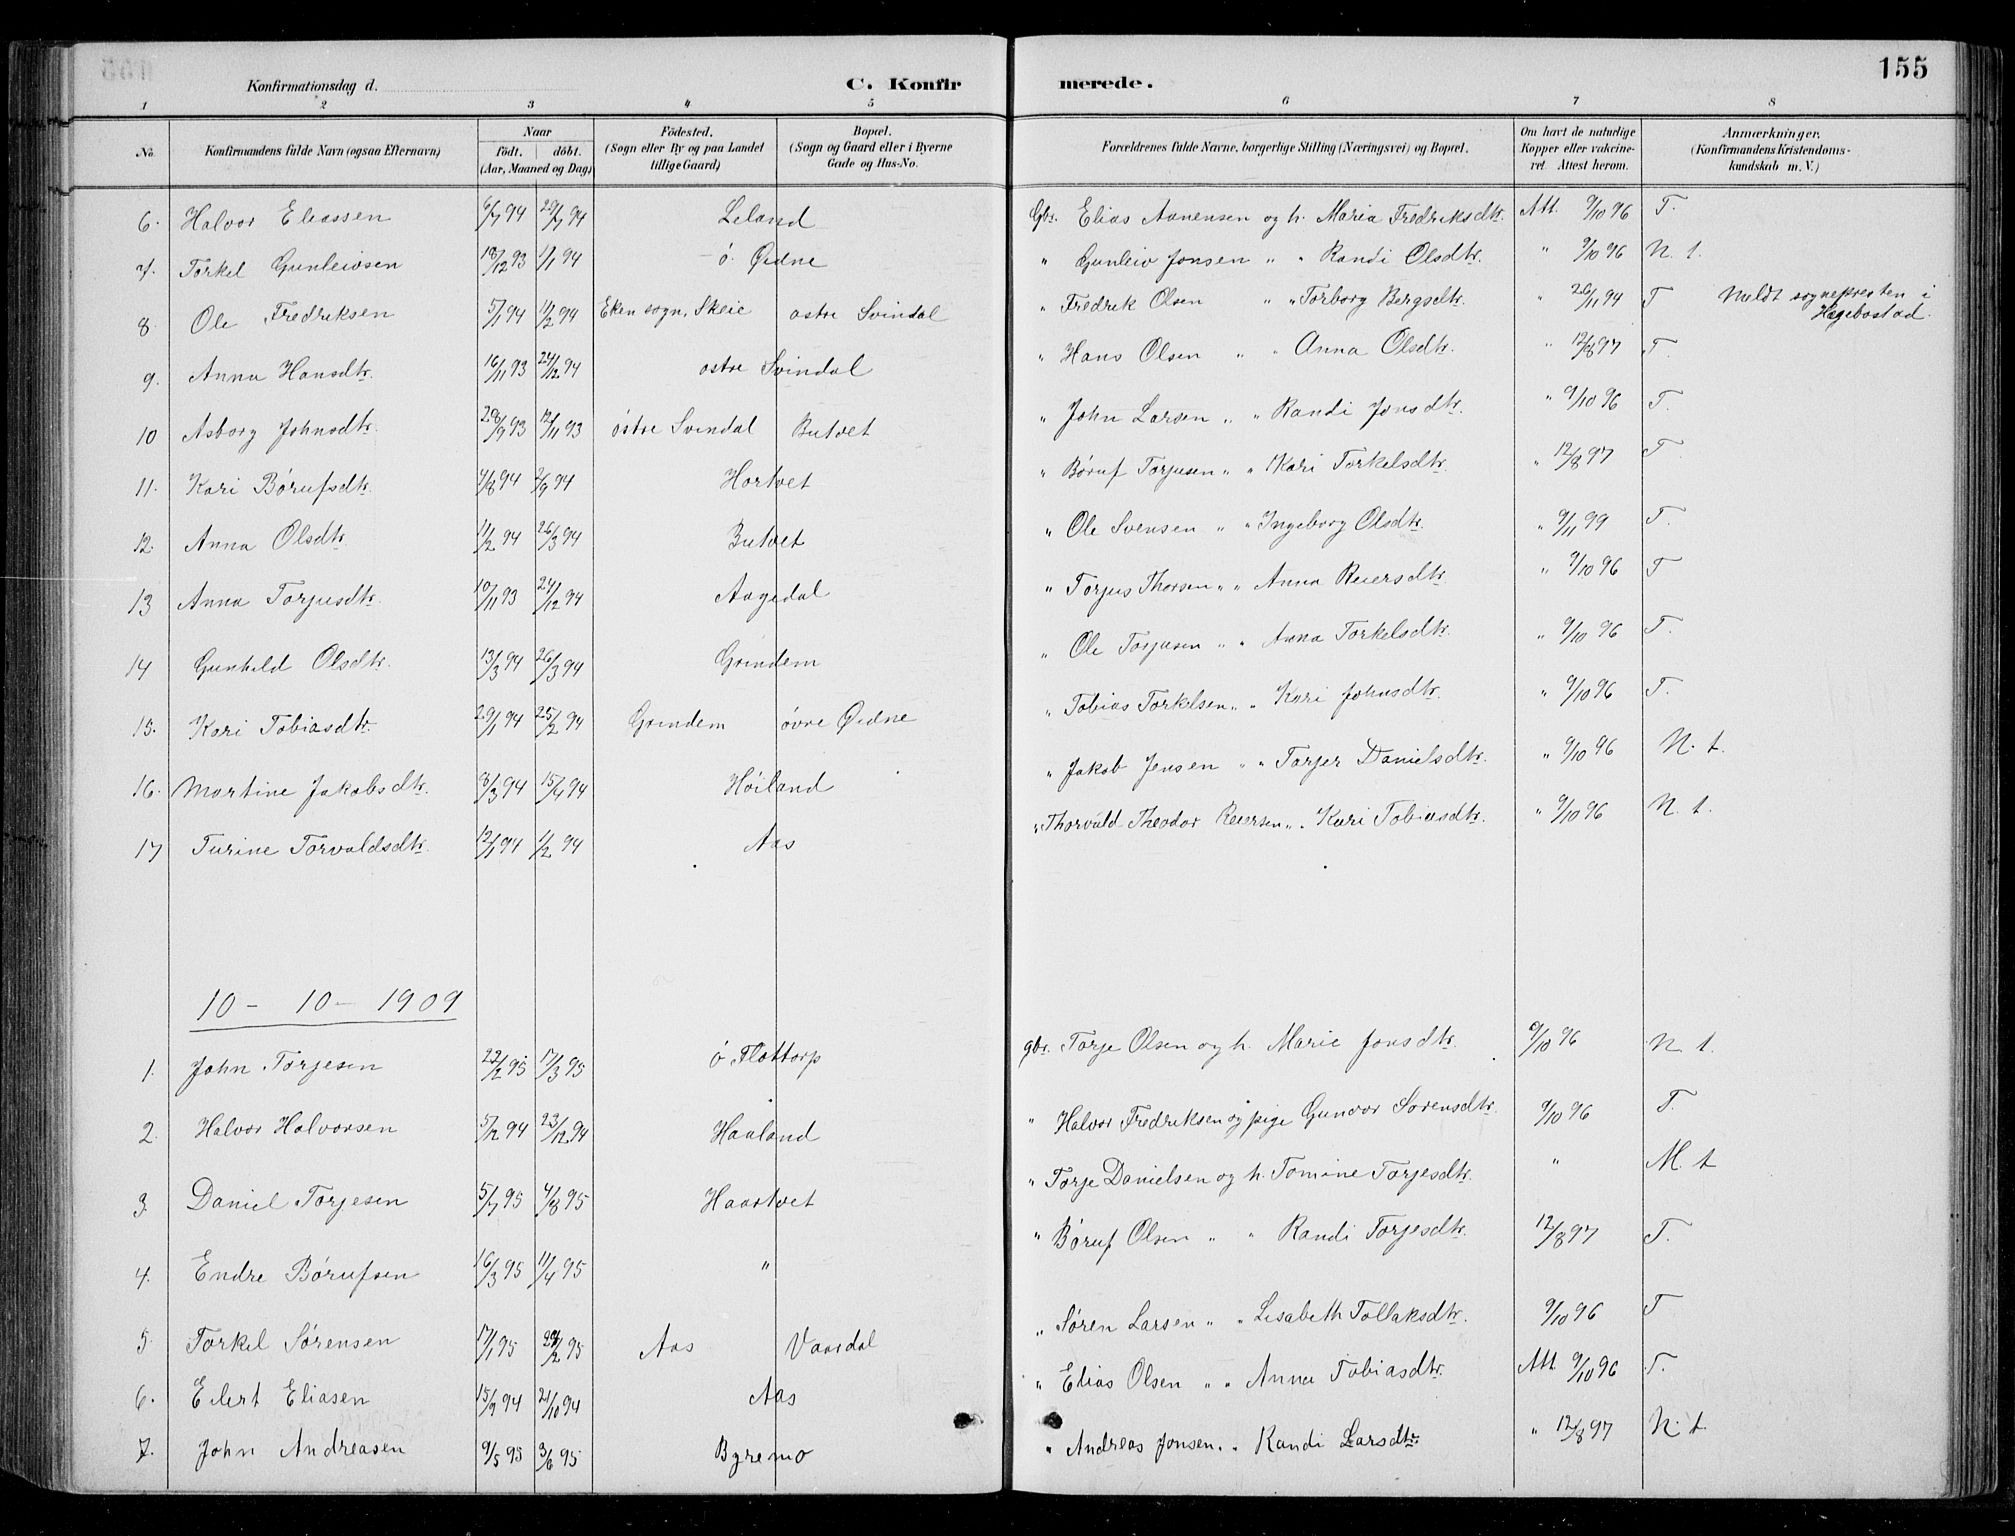 155
Konfirmationsdag d. C. Konfirmerede.
1 2 3 4 5 6 7 8
No. Konfirmandens fulde Navn (ogsaa Efternavn) Naar födt. döbt. (Aar, Maaned og Dag) Födested. (Sogn eller By og paa Landet tillige Gaard) Bopæl. (Sogn og Gaard eller i Byerne Gade og Hus-No. Forældrenes fulde Navne, borgerlige Stilling (Næringsvei) og Bopæl. Om havt de naturlige Kopper eller vakcineret. Attest herom. Anmærkninger. (Konfirmandens Kristendomskundskab m. V.)
6. Halvor Eliassen 6/7 94 29/7 94 Leland Gbr. Elias Aanensen og h. Maria Fredriksdtr. Att. 9/10 96 T.
7. Torkel Gunleivsen 18/12 93 1/1 94 ö. Øidne " Gunleiv Jonsen " " Randi Olsdtr. " 9/10 96 N. t.
8. Ole Fredriksen 5/1 94 11/2 94 Eken sogn, Skeie østre Svindal " Fredrik Olsen " " Torborg Bergsdtr. " 26/11 94 T Meldt sognepresten i Hægebostad.
9. Anna Hansdtr. 16/11 93 24/12 94 østre Svindal " Hans Olsen " " Anna Olsdtr. " 12/8 97 T.
10 Asborg Johnsdtr. 28/9 93 12/11 93 østre Svindal Butvet " John Larsen " " Randi Jonsdtr. " 9/10 96 T.
11. Kari Börufsdtr. 4/8 94 2/9 94 Hortvet " Böruf Torjusen " " Kari Torkelsdtr. " 12/8 97 T
12. Anna Olsdtr. 11/2 94 26/3 94 Butvet " Ole Svensen " " Ingeborg Olsdtr. " 9/11 99 T.
13 Anna Torjusdtr. 10/11 93 24/12 94 Aagedal " Torjus Thorsen " " Anna Reiersdtr. " 9/10 96 T
14 Gunhild Olsdtr. 13/3 94 26/3 94 Grindem " Ole Torjusen " " Anna Torkelsdtr. " 9/10 96 T.
15. Kari Tobiasdtr. 29/1 94 25/2 94 Grindem övre Øidne " Tobias Torkelsen " " Kari Johnsdtr. " 9/10 96 T.
16. Martine Jakobsdtr. 8/3 94 15/4 94 Höiland " Jakob Jensen " " Torjer Danielsdtr. " 9/10 96 N. t.
17 Turine Torvaldsdtr. 12/1 94 11/2 94 Aas " Thorvald Theodor Reiersen " " Kari Tobiasdtr. " 9/10 96 N. t.
10 - 10 - 1909
1. John Torjesen 22/2 95 17/3 95 ö Flottorp gbr. Torje Olsen og h. Marie Jonsdtr. 9/10 96 N t.
2. Halvor Halvorsen 5/12 94 23/12 94 Haaland " Halvor Fredriksen og pige Gunvor Sörensdtr. 9/10 96 T.
3. Daniel Torjesen 5/7 95 4/8 95 Haartvet " Torje Danielsen og h. Tomine Torjesdtr. " M. t
4. Endre Börufsen 16/3 95 11/4 95 " " Böruf Olsen " " Randi Torjesdtr. 12/8 97 T.
5. Torkel Sörensen 17/1 95 24/2 95 Aas Vaardal " Sören Larsen " " Lisabeth Tollaksdtr. 9/10 96 T
6. Eilert Eliasen 15/9 94 21/10 94 Aas " Elias Olsen " " Anna Tobiasdtr. Att. 9/10 96 T.
7. John Andreasen 9/5 95 3/6 95 Byremo " Andreas Jonsen " " Randi Larsdtr. " 12/8 97 N. t.